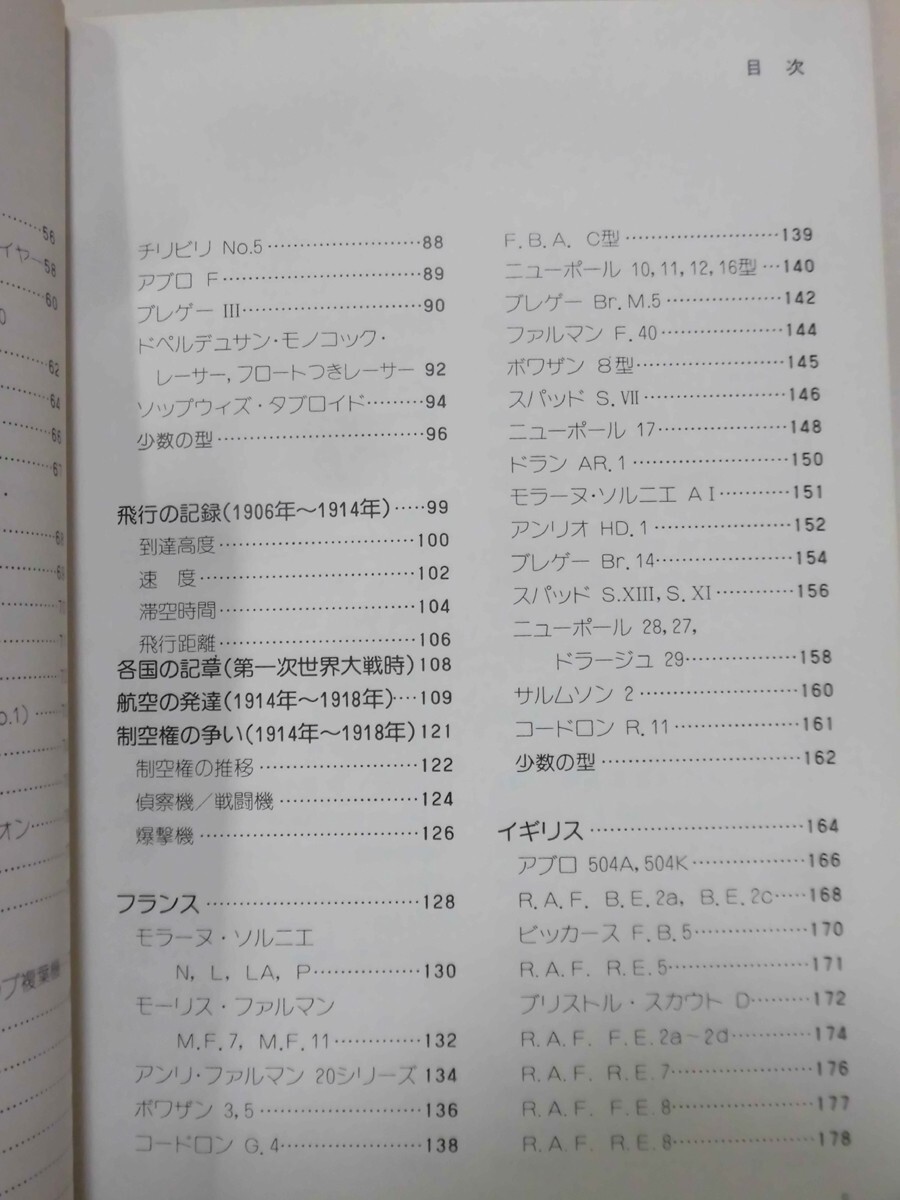 目 次
56
イヤー58
60
0
62
64
66
67
・
68
69
o.1)
オン
プ複葉機
チリビリ No.5……………………88
アブロ F…………………………89
ブレゲー III………………………90
ドペルデュサン・モノコック・
レーサー,フロートつきレーサー 92
ソップウィズ・タブロイド………94
少数の型…………………………96
飛行の記録(1906年〜1914年)……99
到達高度…………………………100
速 度……………………………102
滞空時間…………………………104
飛行距離…………………………106
各国の記章(第一次世界大戦時)108
航空の発達(1914年〜1918年)…109
制空権の争い(1914年〜1918年)121
制空権の推移……………………122
偵察機/戦闘機…………………124
爆撃機……………………………126
フランス…………………………128
モラーヌ・ソルニエ
N, L, LA, P……………130
モーリス・ファルマン
M.F.7, M.F.11…………132
アンリ・ファルマン 20シリーズ 134
ボワザン 3,5……………………136
コードロン G.4…………………138
F.B.A. C型……………………139
ニューポール 10,11,12,16型…140
ブレゲー Br.M.5………………142
ファルマン F.40………………144
ボワザン 8型……………………145
スパッド S.VII…………………146
ニューポール 17………………148
ドラン AR.1……………………150
モラーヌ・ソルニエ A I………151
アンリオ HD.1…………………152
ブレゲー Br.14…………………154
スパッド S.XIII,S.XI…………156
ニューポール 28,27,
ドラージュ 29………………158
サルムソン 2……………………160
コードロン R.11………………161
少数の型…………………………162
イギリス…………………………164
アブロ 504A,504K………………166
R.A.F. B.E.2a, B.E.2c……168
ビッカース F.B.5………………170
R.A.F. R.E.5…………………171
ブリストル・スカウト D………172
R.A.F. F.E.2a〜2d…………174
R.A.F. R.E.7…………………176
R.A.F. F.E.8…………………177
R.A.F. R.E.8…………………178